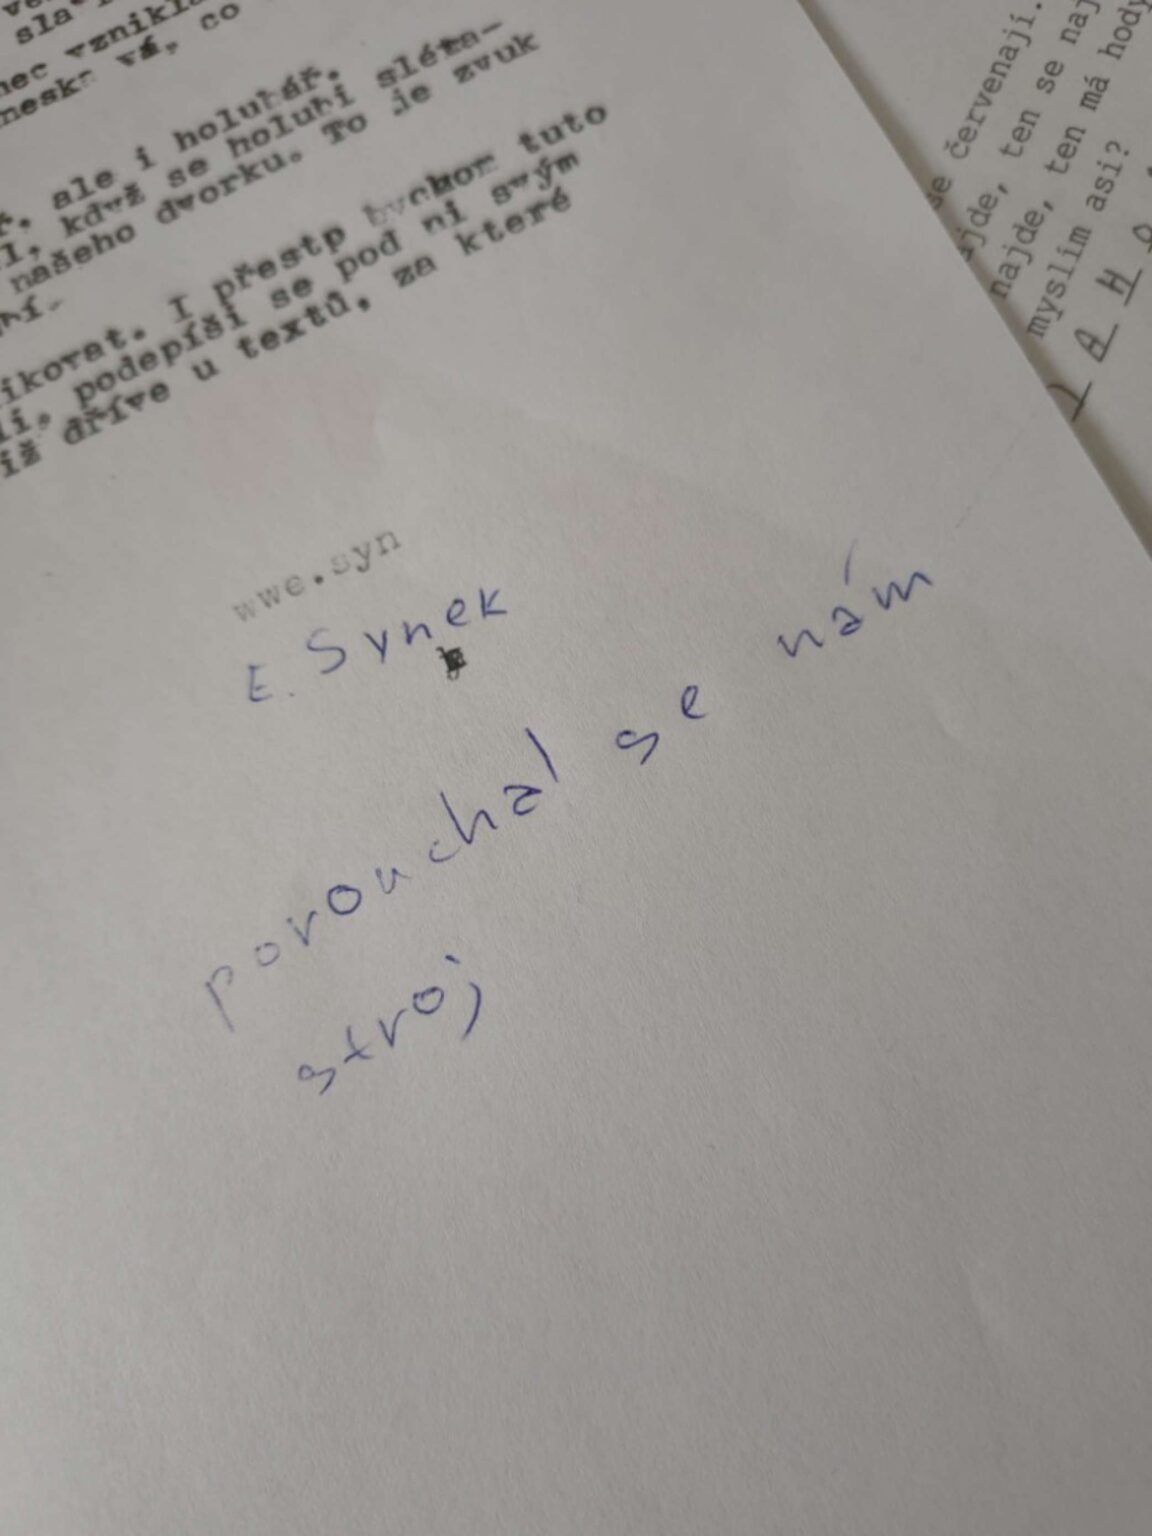 nec vznikla
vá, co
ale i holubář.
když se holubi sléta-
našeho dvorku. To je zvuk
ikovat. I přestp bychom tuto
podepíší se pod ni svým
iž dříve u textů, za které
wwe.syn
E. Synek
porouchal se nám
stroj
se červenají.
ajde, ten se naj
najde, ten má hody
myslím asi?
J A H O